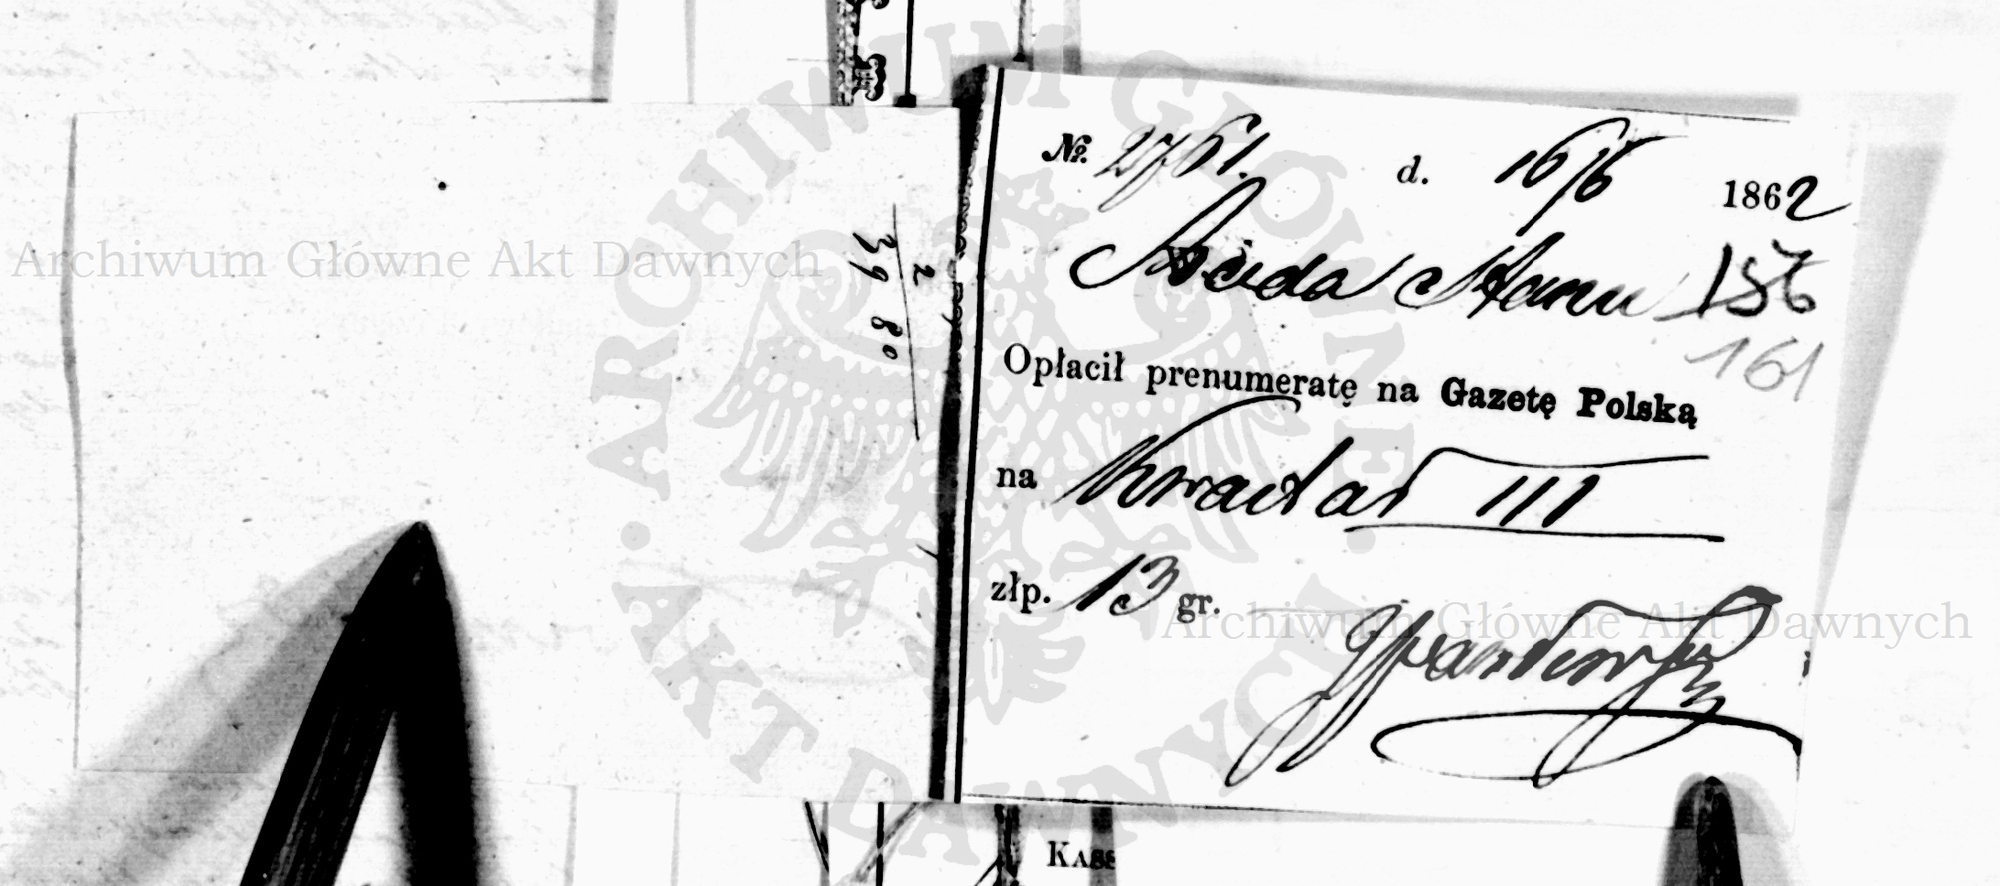 № 2761. d. 16/6 1862
Rada Stanu 156
161
Opłacił prenumeratę na Gazetę Polską
na Kwartał III
złp. 13 gr.
2
39 80
KASS
Archiwum Główne Akt Dawnych
Archiwum Główne Akt Dawnych
ARCHIWUM GŁÓWNE AKT DAWNYCH